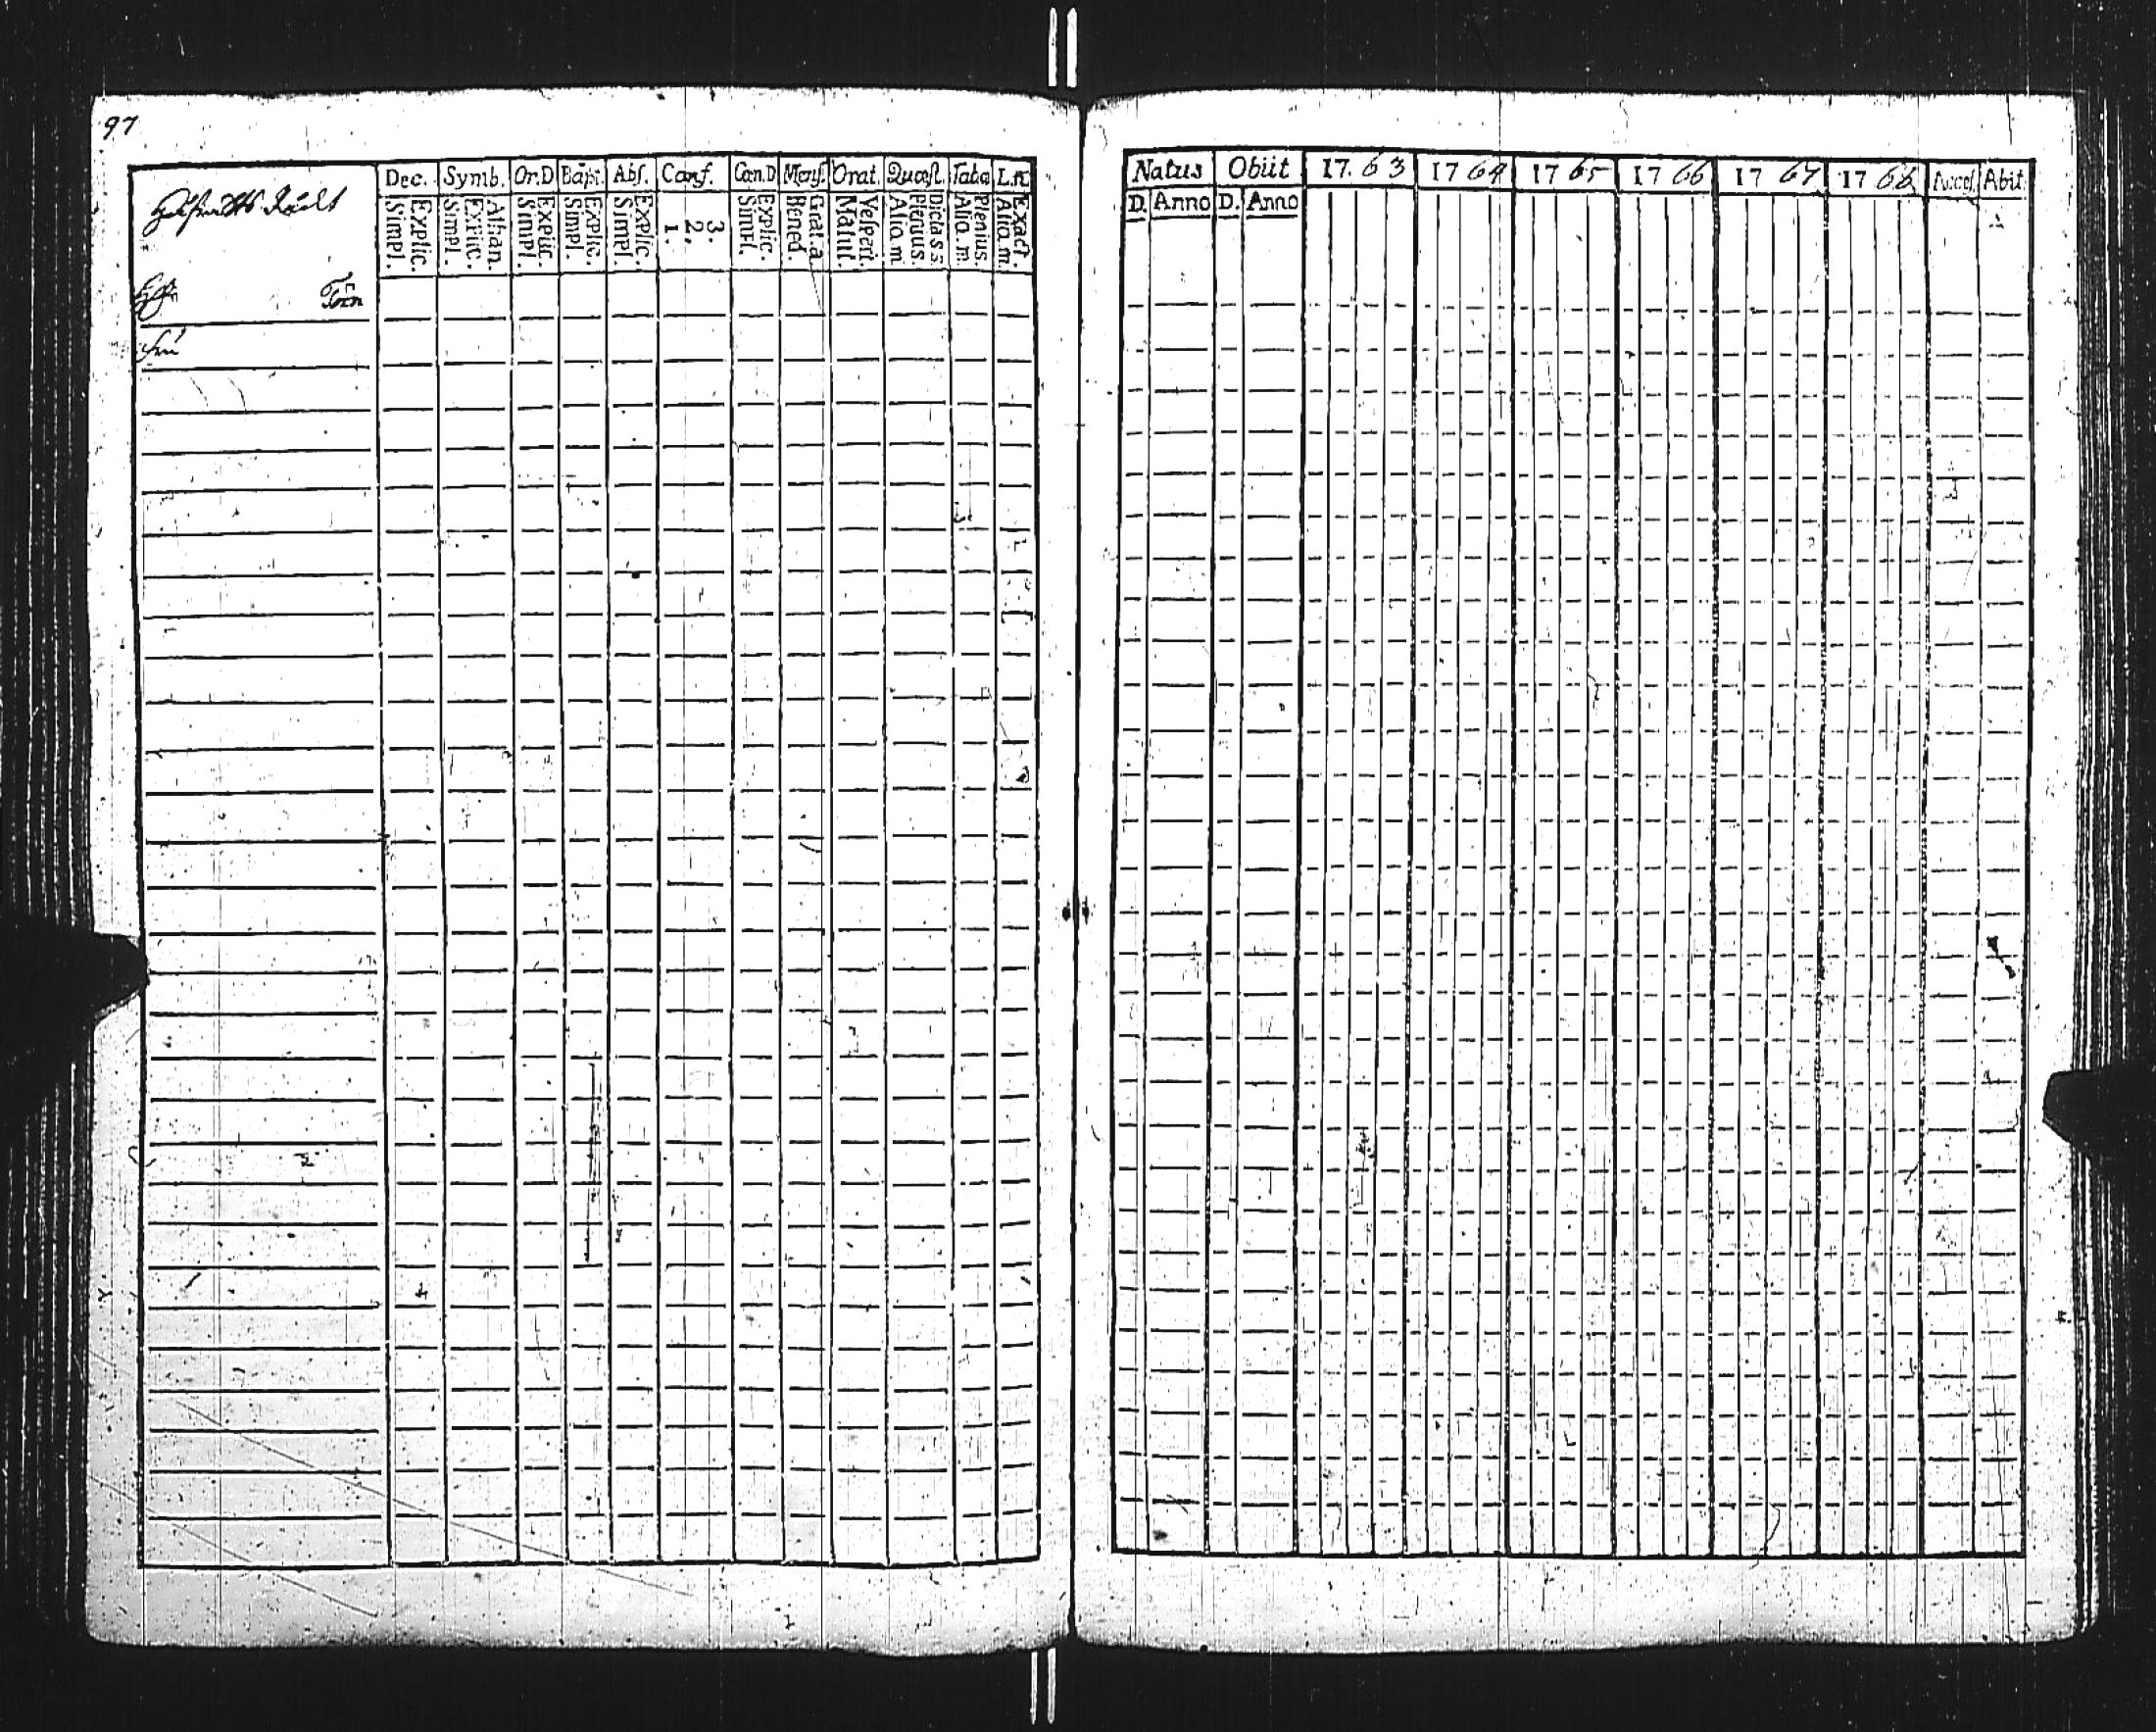 97
Dec. Symb. Or.D Bapt. Abs. Conf. Cœn.D Mens. Orat. Quæst. Taba L.N.
Simpl. Explic. Simpl. Explic. Athan. Simpl. Explic. Simpl. Explic. Simpl. Explic. 1. 2. 3. Simpl. Explic. Bened. Grat. a. Matut. Vespert. Alio. m Plenius. Dicta s s. Alio. m. Plenius. Alio. m. Exact.
Törn
Fru
Natus Obiit 17.63 1764 1765 1766 1767 1768 Acces. Abit
D. Anno D. Anno